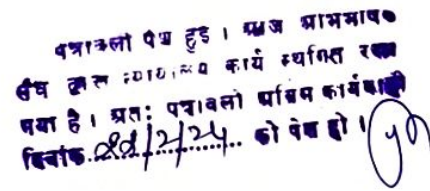 पत्रावली पेश हुई । आज अभिभाषक
संघ द्वारा न्यायिक कार्य स्थगित रखा
गया है । अतः पत्रावली अग्रिम कार्यवाही
दिनांक.......2/24...... को पेश हो ।